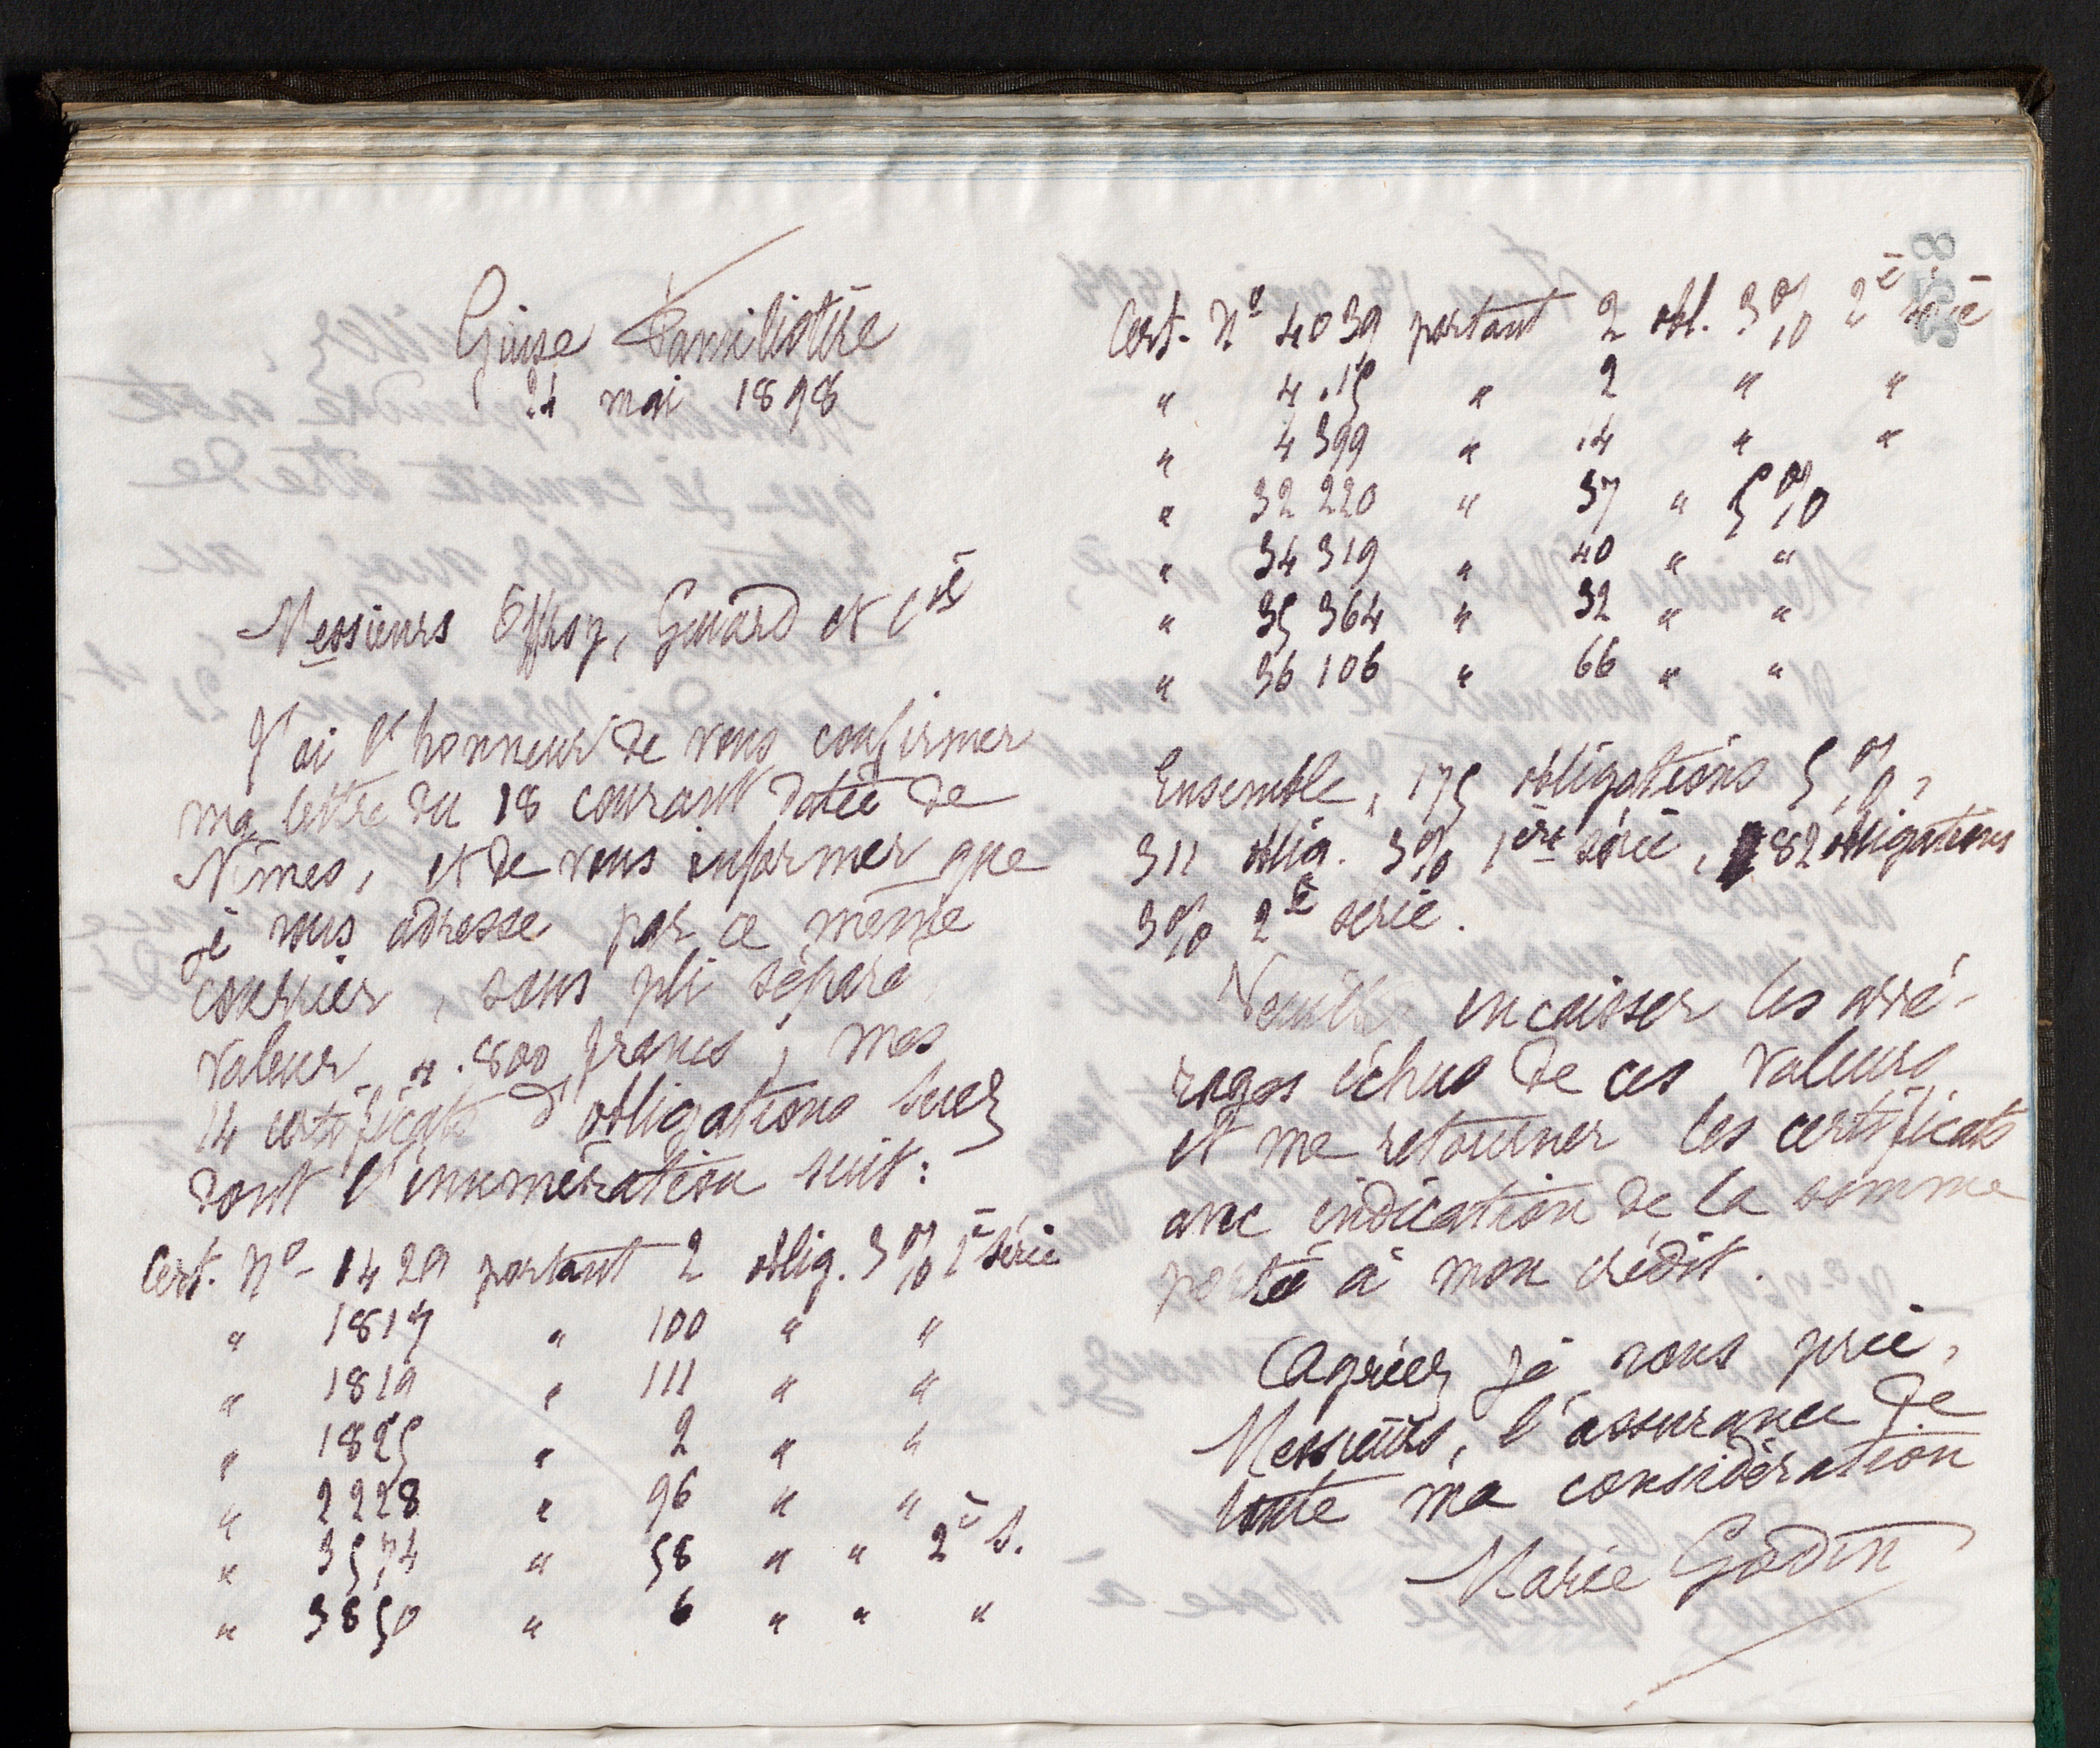 Guise Familistère
24 mai 1898
Messieurs Offroy, Guiard et Cie
J'ai l'honneur de vous confirmer
ma lettre du 18 courant datée de
Nîmes, et de vous informer que
je vous adresse par ce même
courrier, sous pli séparé
valeur 800 francs, mes
14 certificats d'obligations Suez
dont l'énumération suit:
Cert. No 1429 portant 2 oblig. 3% 1e série
" 1817 " 100 " "
" 1819 " 111 " "
" 1825 " 2 " "
" 2228 " 96 " "
" 3574 " 58 " " 2e S.
" 3850 " 6 " " "
Cert. No 4039 portant 2 obl. 3% 2e série
" 2 " "
" 4399 " 14 " "
" 32 220 " 37 " 5%
" 34 319 " 40 " "
" 35 364 " 32 " "
" 36 106 " 66 " "
Ensemble, 175 obligations 5%,
311 oblig. 3% 1ère série, 82 obligations
3% 2e série.
Veuillez encaisser les arré-
rages échus de ces valeurs
et me retourner les certificats
avec indication de la somme
portée à mon crédit.
Agréez je vous prie,
Messieurs, l'assurance de
toute ma considération
Marie Godin